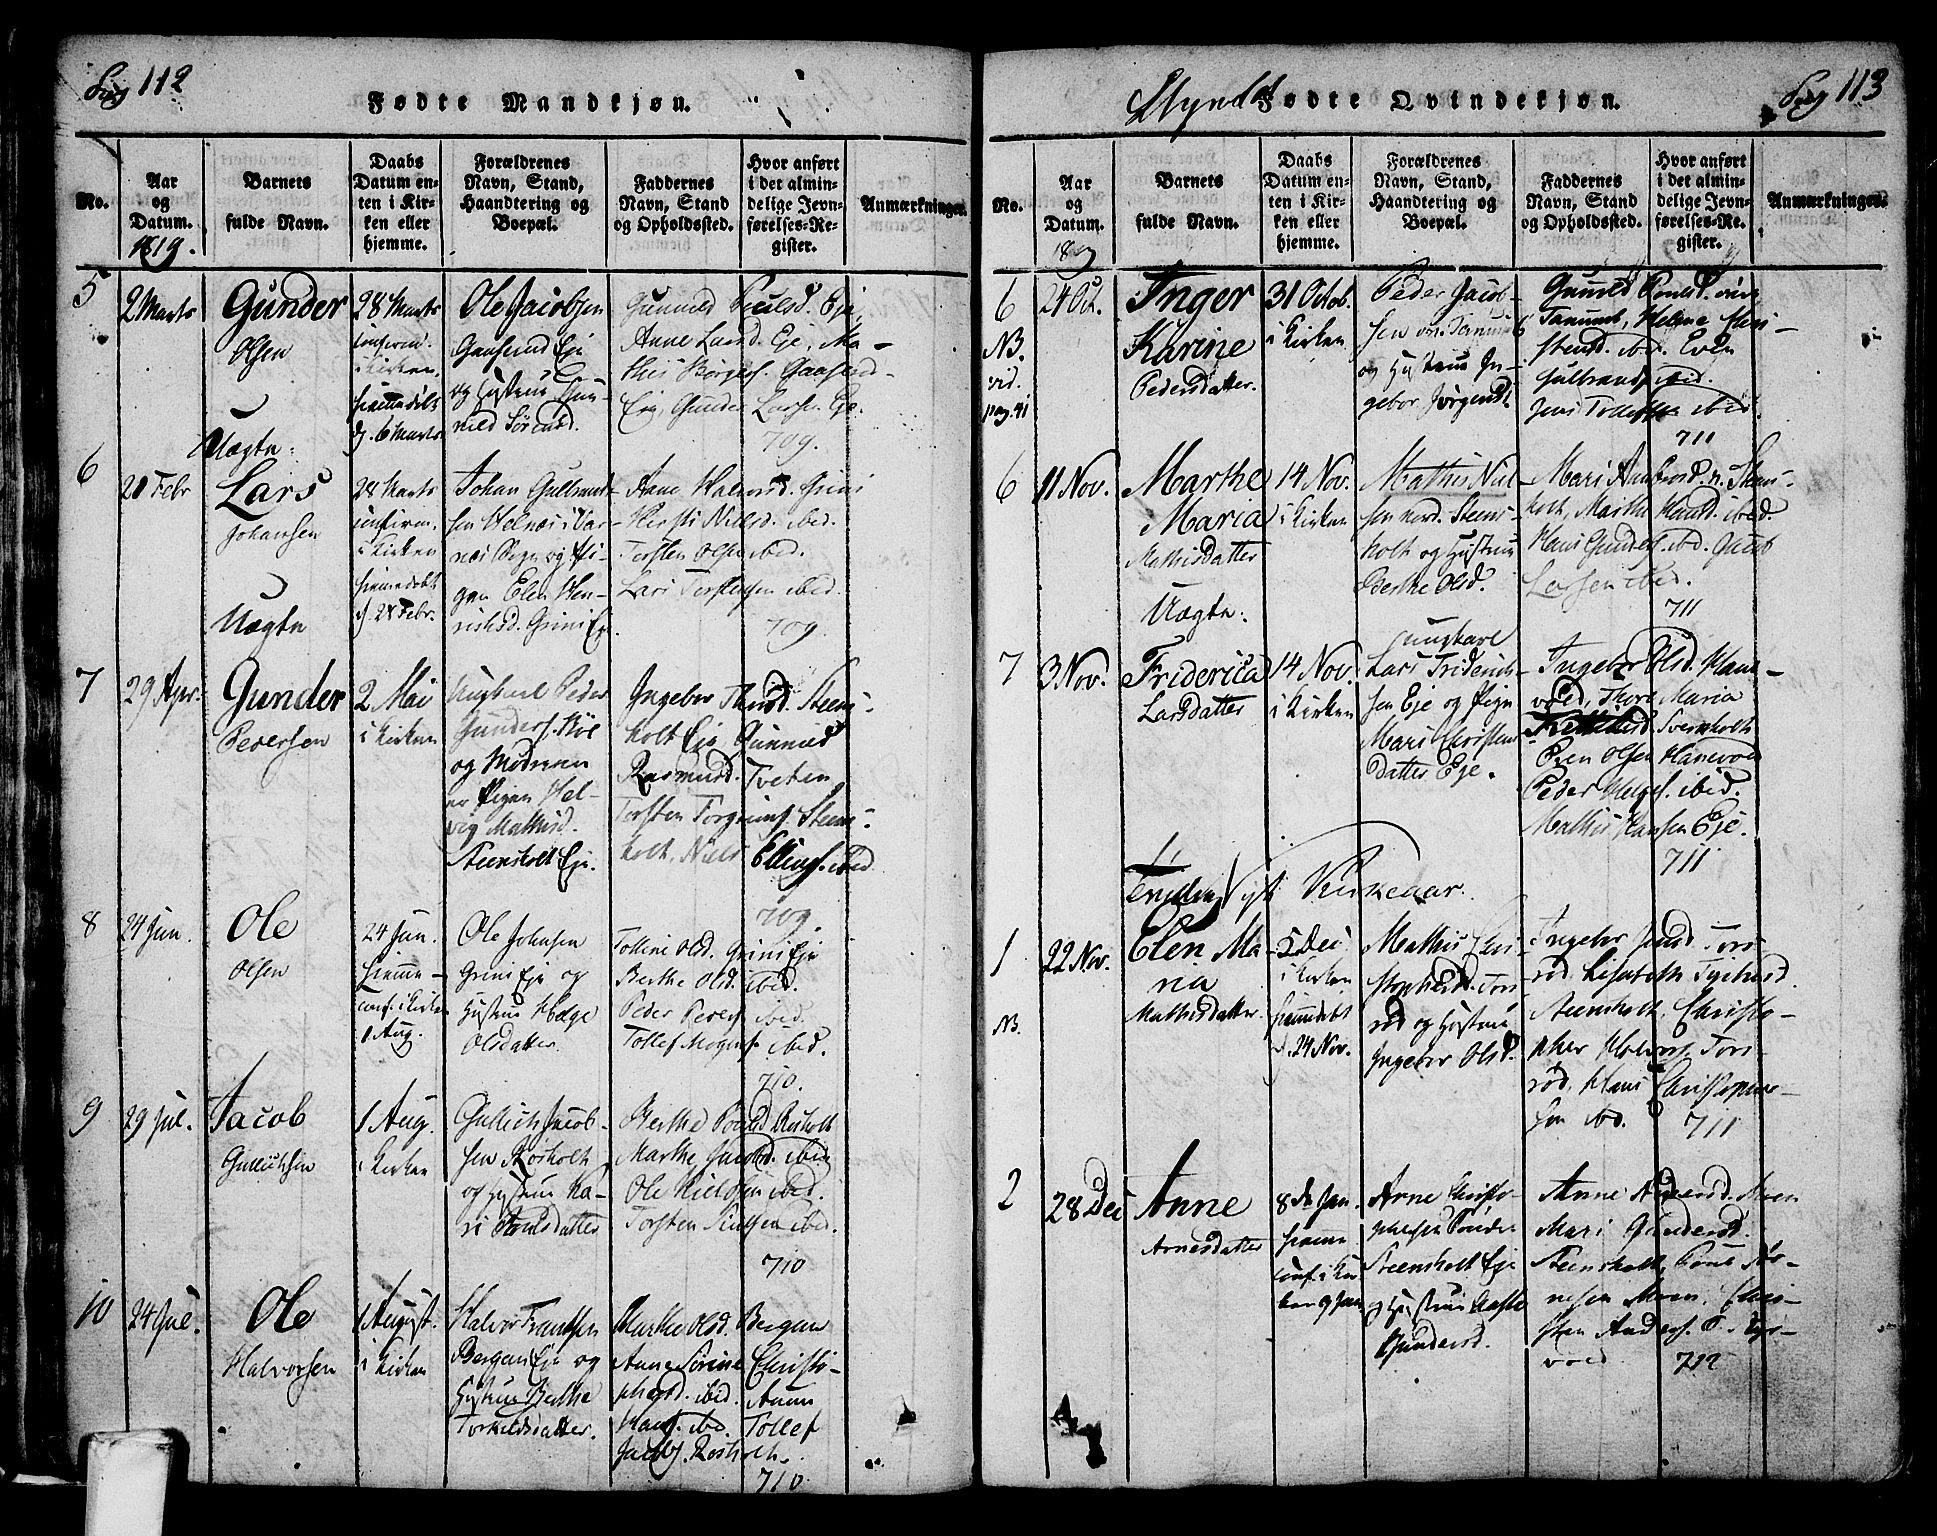 Pag 112
Fødte Mandkjøn.
No.
Aar og Datum.
1819.
Barnets fulde Navn.
Daabs Datum enten i Kirken eller hjemme.
Forældrenes Navn, Stand, Haandtering og Boepæl.
Faddernes Navn, Stand og Opholdssted.
Hvor anført i det almindelige Jevnførelses-Register.
Anmærkninger.
5
2 Marts
Gunder
Olsen
Uægte
28 Marts
confirm.
i Kirken,
hjemmedøbt
d. 6 Marts
Ole Jacobsen
Gaaserud Eje
og Hustrue Gun-
nild Sørensd.
Gunnild Poulsd. Eje,
Anne Larsd. Eje, Ma-
this Børges. Gaaserud
Eje, Gunder Larsen Eje.
709.
6
20 Febr
Lars
Johansen
Uægte
28 Marts
confirm.
i Kirken
hjemmedøbt
d. 28 Febr.
Johan Gulbrand-
sen Helnæs i Var-
næs Sogn og Pi-
gen Elen Hen-
richsd. Grini Eje.
Anne Halvorsd. Grini
Kersti Nielsd. ibid.
Torsten Olsen ibid.
Lars Torstensen ibid.
709.
7
29 Apr.
Gunder
Pedersen
2 Mai
i Kirken
Ungkarl Peder
Gunders. Bøe
og Moderen
er Pigen Hel-
vig Mathisd.
Steensholt Eje.
Ingebor Knudsd. Steens-
holt Eje Gunnild
Rasmusd. Tveten
Torsten Torgrims. Steens-
holt, Niels Ellings. ibid
709.
8
24 Jun.
Ole
Olsen
24 Jun.
hjemme
conf. i Kirken
1 Aug.
Ole Johnsen
Grini Eje og
Hustrue Helge
Olsdatter.
Tolline Olsd. Grini Eje
Berthe Olsd. ibid.
Peder Peders. ibid.
Tollef Mogens. ibid.
710.
9
29 Jul.
Jacob
Gullichsen
1 Aug.
i Kirken
Gullich Jacob-
sen Røsholt
og Hustrue Ka-
ri Poulsdatter
Berthe Poulsd Røsholt
Marthe Jacobsd. ibid
Ole Nielsen ibid.
Torsten ibid.
710
10
24 Jul.
Ole
Halvorsen
1 August.
i Kirken
Halvor Frantsen
Bergan Eje og
Hustrue Berthe
Torkildsdatter.
Marthe Olsd. Bergan
Anne Sørine Christo-
phersd. ibid.
Hans. ibid Tollef
Jacobs. Røsholt.
710
Slyngdal
Fødte Qvindekjøn.
Pag 113
No.
Aar og Datum.
1819
Barnets fulde Navn.
Daabs Datum enten i Kirken eller hjemme.
Forældrenes Navn, Stand, Haandtering og Boepæl.
Faddernes Navn, Stand og Opholdssted.
Hvor anført i det almindelige Jevnførelses-Register.
Anmærkninger.
6
NB.
vid.
pag. 41
24 Oct.
Inger
Karine
Pedersdatter.
31 Octob.
i Kirken
Peder Jacob-
sen
og Hustrue In-
gebor Jørgensd.
Gunild Poulsd.
Helene Chri-
stensd. ibid. Even
Gulbrands. ibid.
Jens Tollefs. ibid.
711
6
11 Nov.
Marthe
Maria
Mathisdatter
Uægte.
14 Nov.
i Kirken
Mathis Niel-
sen nord. Steens-
holt og Hustrue
Berthe Olsd.
Mari n. Steens-
holt, Marthe Hansd. ibid.
Hans Gunders. ibid. Jacob
Larsen ibid.
711
7
3 Nov.
Friderica
Larsdatter
14 Nov.
i Kirken
Ungkarl
Lars Friderich-
sen Eje og Pigen
Mari Christens
Datter Eje.
Ingebor Olsd. Hane-
vold, Thore Maria
Svensholt
Even Olsen Hanevold
Peder Helges. ibid.
Mathis Hansen Eje.
711
Tredie Kirkeaar.
1
NB.
22 Nov.
Elen Ma-
ria
Mathisdatter.
5 Dec
i Kirken
hjemmedøbt
d. 24 Nov.
Mathis Chri-
stophersd. Tors-
rød og Hustrue
Ingebor Olsd.
Ingebor Jensd Tors-
rød, Lisabeth
Steensholt, Christo-
pher Halvors. Tors-
rød, Hans Christopher-
sen ibid.
711
2
28 Dec
Anne
Arnesdatter
8 da Jan.
hjemme
conf. i Kir-
ken 9 Jan.
Arne Christo-
phersen
Steensholt Eje
og Hustrue
Gundersd.
Anne Moen
Mari Gundersd.
Steensholt, Poul Sø-
rensen Moen, Chri-
sten Anders.
712